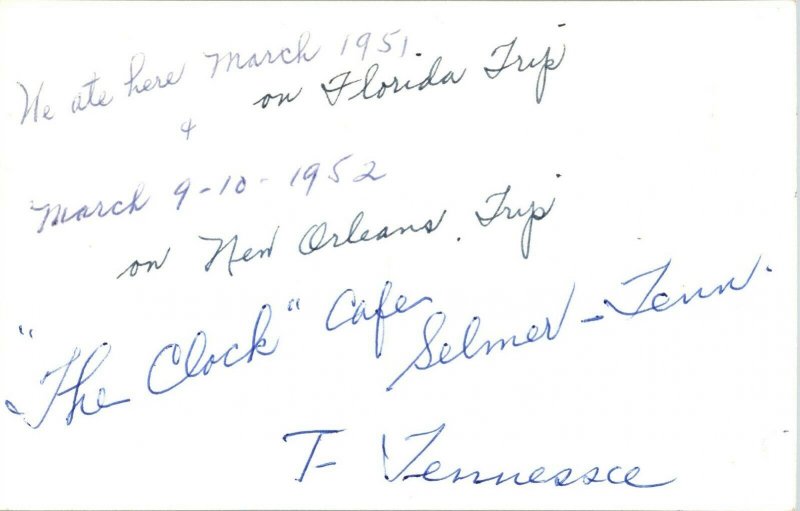 We ate here March 1951
& on Florida Trip
March 9-10-1952
on New Orleans Trip
"The Clock" Cafe
Selmer - Tenn.
T- Tennessee